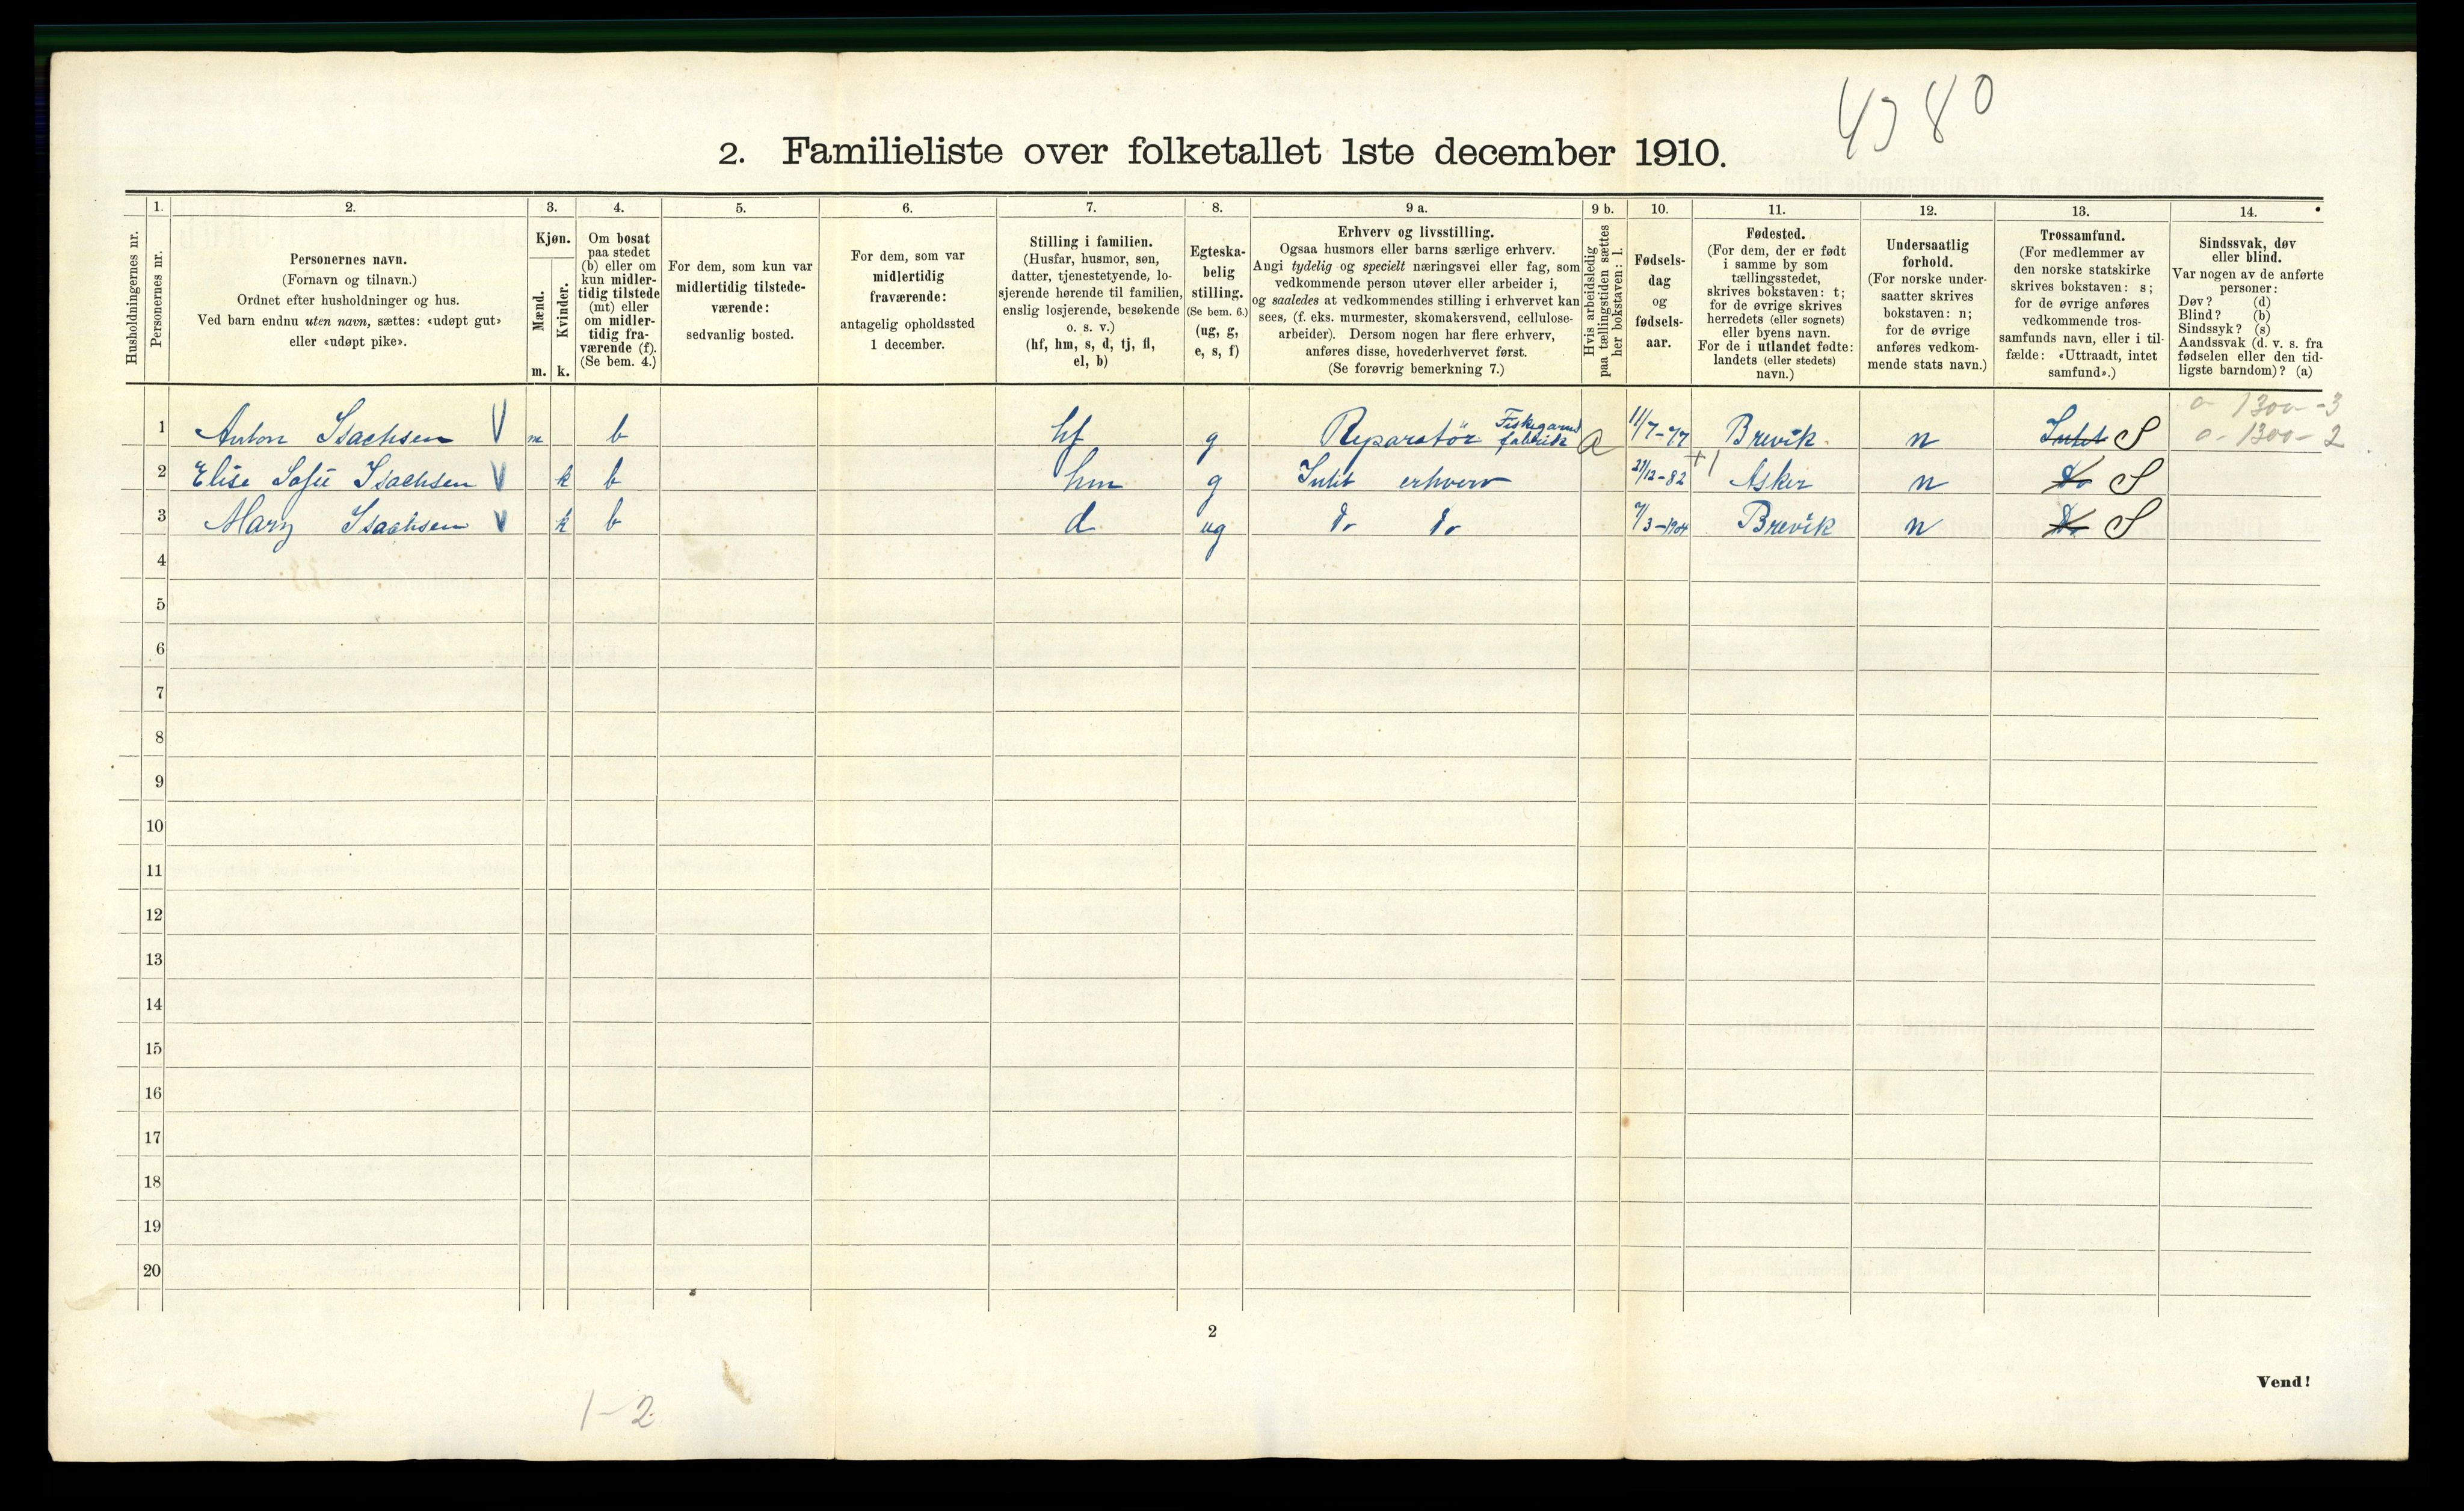 4980
2. Familieliste over folketallet 1ste december 1910.
Husholdningernes nr.
Personernes nr.
1.
2.
Personernes navn.
(Fornavn og tilnavn.)
Ordnet efter husholdninger og hus.
Ved barn endnu uten navn, sættes: «udøpt gut»
eller «udøpt pike».
3.
Kjøn.
Mænd.
Kvinder.
m. k.
4.
Om bosat
paa stedet
(b) eller om
kun midler-
tidig tilstede
(mt) eller
om midler-
tidig fra-
værende (f).
(Se bem. 4.)
5.
For dem, som kun var
midlertidig tilstede-
værende:
sedvanlig bosted.
6.
For dem, som var
midlertidig
fraværende:
antagelig opholdssted
1 december.
7.
Stilling i familien.
(Husfar, husmor, søn,
datter, tjenestetyende, lo-
sjerende hørende til familien,
enslig losjerende, besøkende
o. s. v.)
(hf, hm, s, d, tj, fl,
el, b)
8.
Egteska-
belig
stilling.
(Se bem. 6.)
(ug, g,
e, s, f)
9 a.
Erhverv og livsstilling.
Ogsaa husmors eller barns særlige erhverv.
Angi tydelig og specielt næringsvei eller fag, som
vedkommende person utøver eller arbeider i,
og saaledes at vedkommendes stilling i erhvervet kan
sees, (f. eks. murmester, skomakersvend, cellulose-
arbeider). Dersom nogen har flere erhverv,
anføres disse, hovederhvervet først.
(Se forøvrig bemerkning 7.)
9 b.
Hvis arbeidsledig
paa tællingstiden sættes
her bokstaven: l.
10.
Fødsels-
dag
og
fødsels-
aar.
11.
Fødested.
(For dem, der er født
i samme by som
tællingsstedet,
skrives bokstaven: t;
for de øvrige skrives
herredets (eller sognets)
eller byens navn.
For de i utlandet fødte:
landets (eller stedets)
navn.)
12.
Undersaatlig
forhold.
(For norske under-
saatter skrives
bokstaven: n;
for de øvrige
anføres vedkom-
mende stats navn.)
13.
Trossamfund.
(For medlemmer av
den norske statskirke
skrives bokstaven: s;
for de øvrige anføres
vedkommende tros-
samfunds navn, eller i til-
fælde: «Uttraadt, intet
samfund».)
14.
Sindssvak, døv
eller blind.
Var nogen av de anførte
personer:
Døv? (d)
Blind? (b)
Sindssyk? (s)
Aandssvak (d. v. s. fra
fødselen eller den tid-
ligste barndom)? (a)
0-1300-3
1 Anton Isachsen V m b hf g Reparatör Fiskegarns fabrikk a 11/7-77 Brevik. n Intet S 0-1300-2
2 Elise Sofie Isachsen V k b hm g Intet erhverv 27/12-82 +1 Asker n Do S
3 Mary Isachsen V k b d ug Do Do 7/3-1904 Brevik n Do S
4
5
6
7
8
9
10
11
12
13
14
15
16
17
18
19
20
2
Vend!
1-2